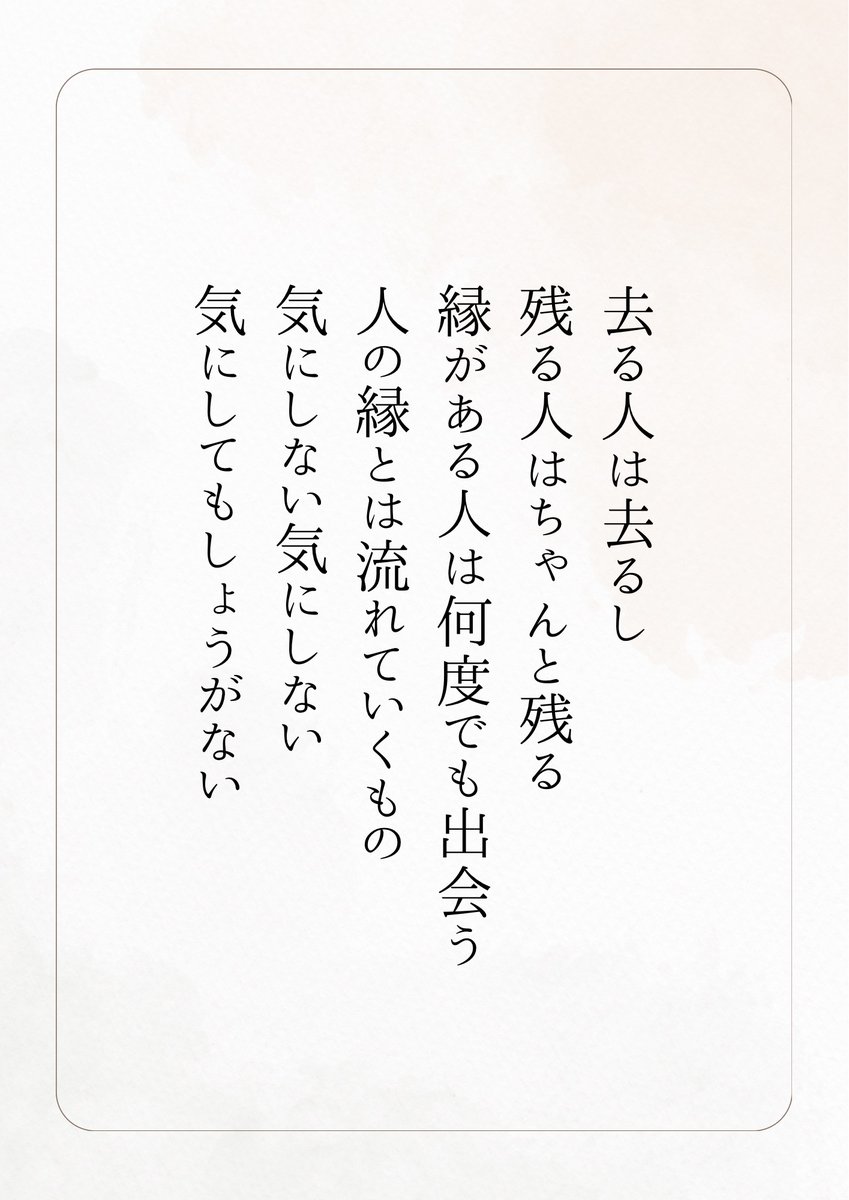 去る人は去るし
残る人はちゃんと残る
縁がある人は何度でも出会う
人の縁とは流れていくもの
気にしない気にしない
気にしてもしょうがない